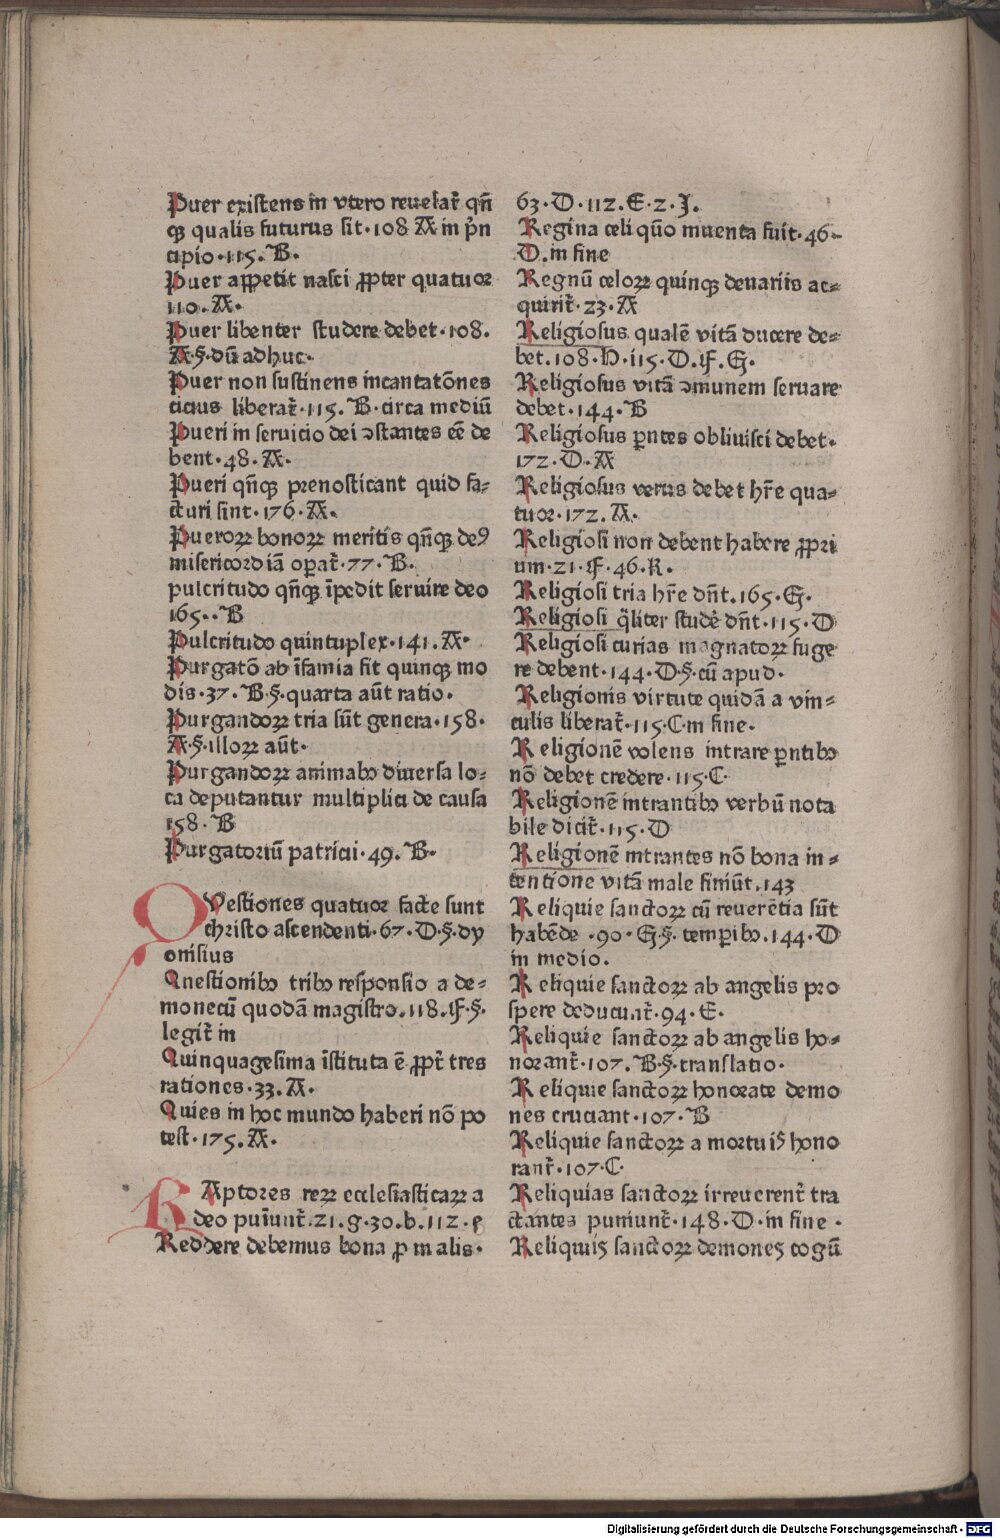 Puer existens in vtero reuelat᷑ qñ
qꝫ qualis futurus sit·108 A in p̾n
cipio·115·B·
Puer appetit nasci ꝓpter quatuor
110·A·
Puer libenter studere debet·108·
A·§·dū adhuc·
Puer non sustinens incantatōnes
cicius liberat᷑·115·B·circa mediū
Pueri in seruicio dei ꝯstantes eē de
bent·48·A·
Pueri qñqꝫ prenosticant quid fa⸗
cturi sint·176·A·
Pueroꝝ bonoꝝ meritis qñqꝫ deꝰ
misericordiā oꝑat᷑·77·B·
pulcritudo qñqꝫ īpedit seruire deo
165··B
Pulcritudo quintuplex·141·A·
Purgatō ab īfamia fit quinqꝫ mo
dis·37·B·§·quarta aūt ratio·
Purgandoꝝ tria sūt genera·158·
A·§·illoꝝ aūt·
Purgandoꝝ animabꝫ diuersa lo⸗
ca deputantur multiplici de causa
158·B
Purgatoriū patricii·49·B·
QVestiones quatuor facte sunt
christo ascendenti·67·D·§·dy
onisius
Questionibꝫ tribꝫ responsio a de⸗
monecū quodā magistro·118·F·§·
legit᷑ in
Quinquagesima īstituta ē ꝓpt᷑ tres
rationes·33·A·
Quies in hoc mundo haberi nō po
test·175·A·
RAptores reꝝ ecclesiasticaꝝ a
deo puīunt᷑·21·g·30·b·112·e
Reddere debemus bona ꝓ malis·
63·D·112·E·2·J·
Regina celi quō inuenta fuit·46·
D·in fine
Regnū celoꝝ quinqꝫ denariis ac⸗
quirit᷑·23·A
Religiosus qualē vitā ducere de⸗
bet·108·H·115·D·F·G·
Religiosus vitā ꝯmunem seruare
debet·144·B
Religiosus ꝑntes obliuisci debet·
172·D·A
Religiosus verus debet hr̄e qua⸗
tuor·172·A·
Religiosi non debent habere ꝓpri
um·21·F·46·K·
Religiosi tria hr̄e dn̄t·165·G·
Religiosi q̄liter studē dn̄t·115·D
Religiosi curias magnatoꝝ fuge
re debent·144·D·§·cū apud·
Religionis virtute quidā a vin⸗
culis liberat᷑·115·C·in fine·
Religionē volens intrare ꝑntibꝫ
nō debet credere·115·C·
Religionē intrantibꝫ verbū nota
bile dicit᷑·115·D
Religionē intrantes nō bona in⸗
tentione vitā male finiūt·143
Reliquie sanctoꝝ cū reuerētia sūt
habēde·90·G·§·temꝑibꝫ·144·D
in medio·
Reliquie sanctoꝝ ab angelis pro
spere deducunt᷑·94·E·
Reliquie sanctoꝝ ab angelis ho⸗
norant᷑·107·B·§·translatio·
Reliquie sanctoꝝ honorate demo
nes cruciant·107·B
Reliquie sanctoꝝ a mortuis hono
rant᷑·107·C·
Reliquias sanctoꝝ irreuerent᷑ tra
ctantes puniunt᷑·148·D·in fine·
Reliquiis sanctoꝝ demones cogū
Digitalisierung gefördert durch die Deutsche Forschungsgemeinschaft · DFG